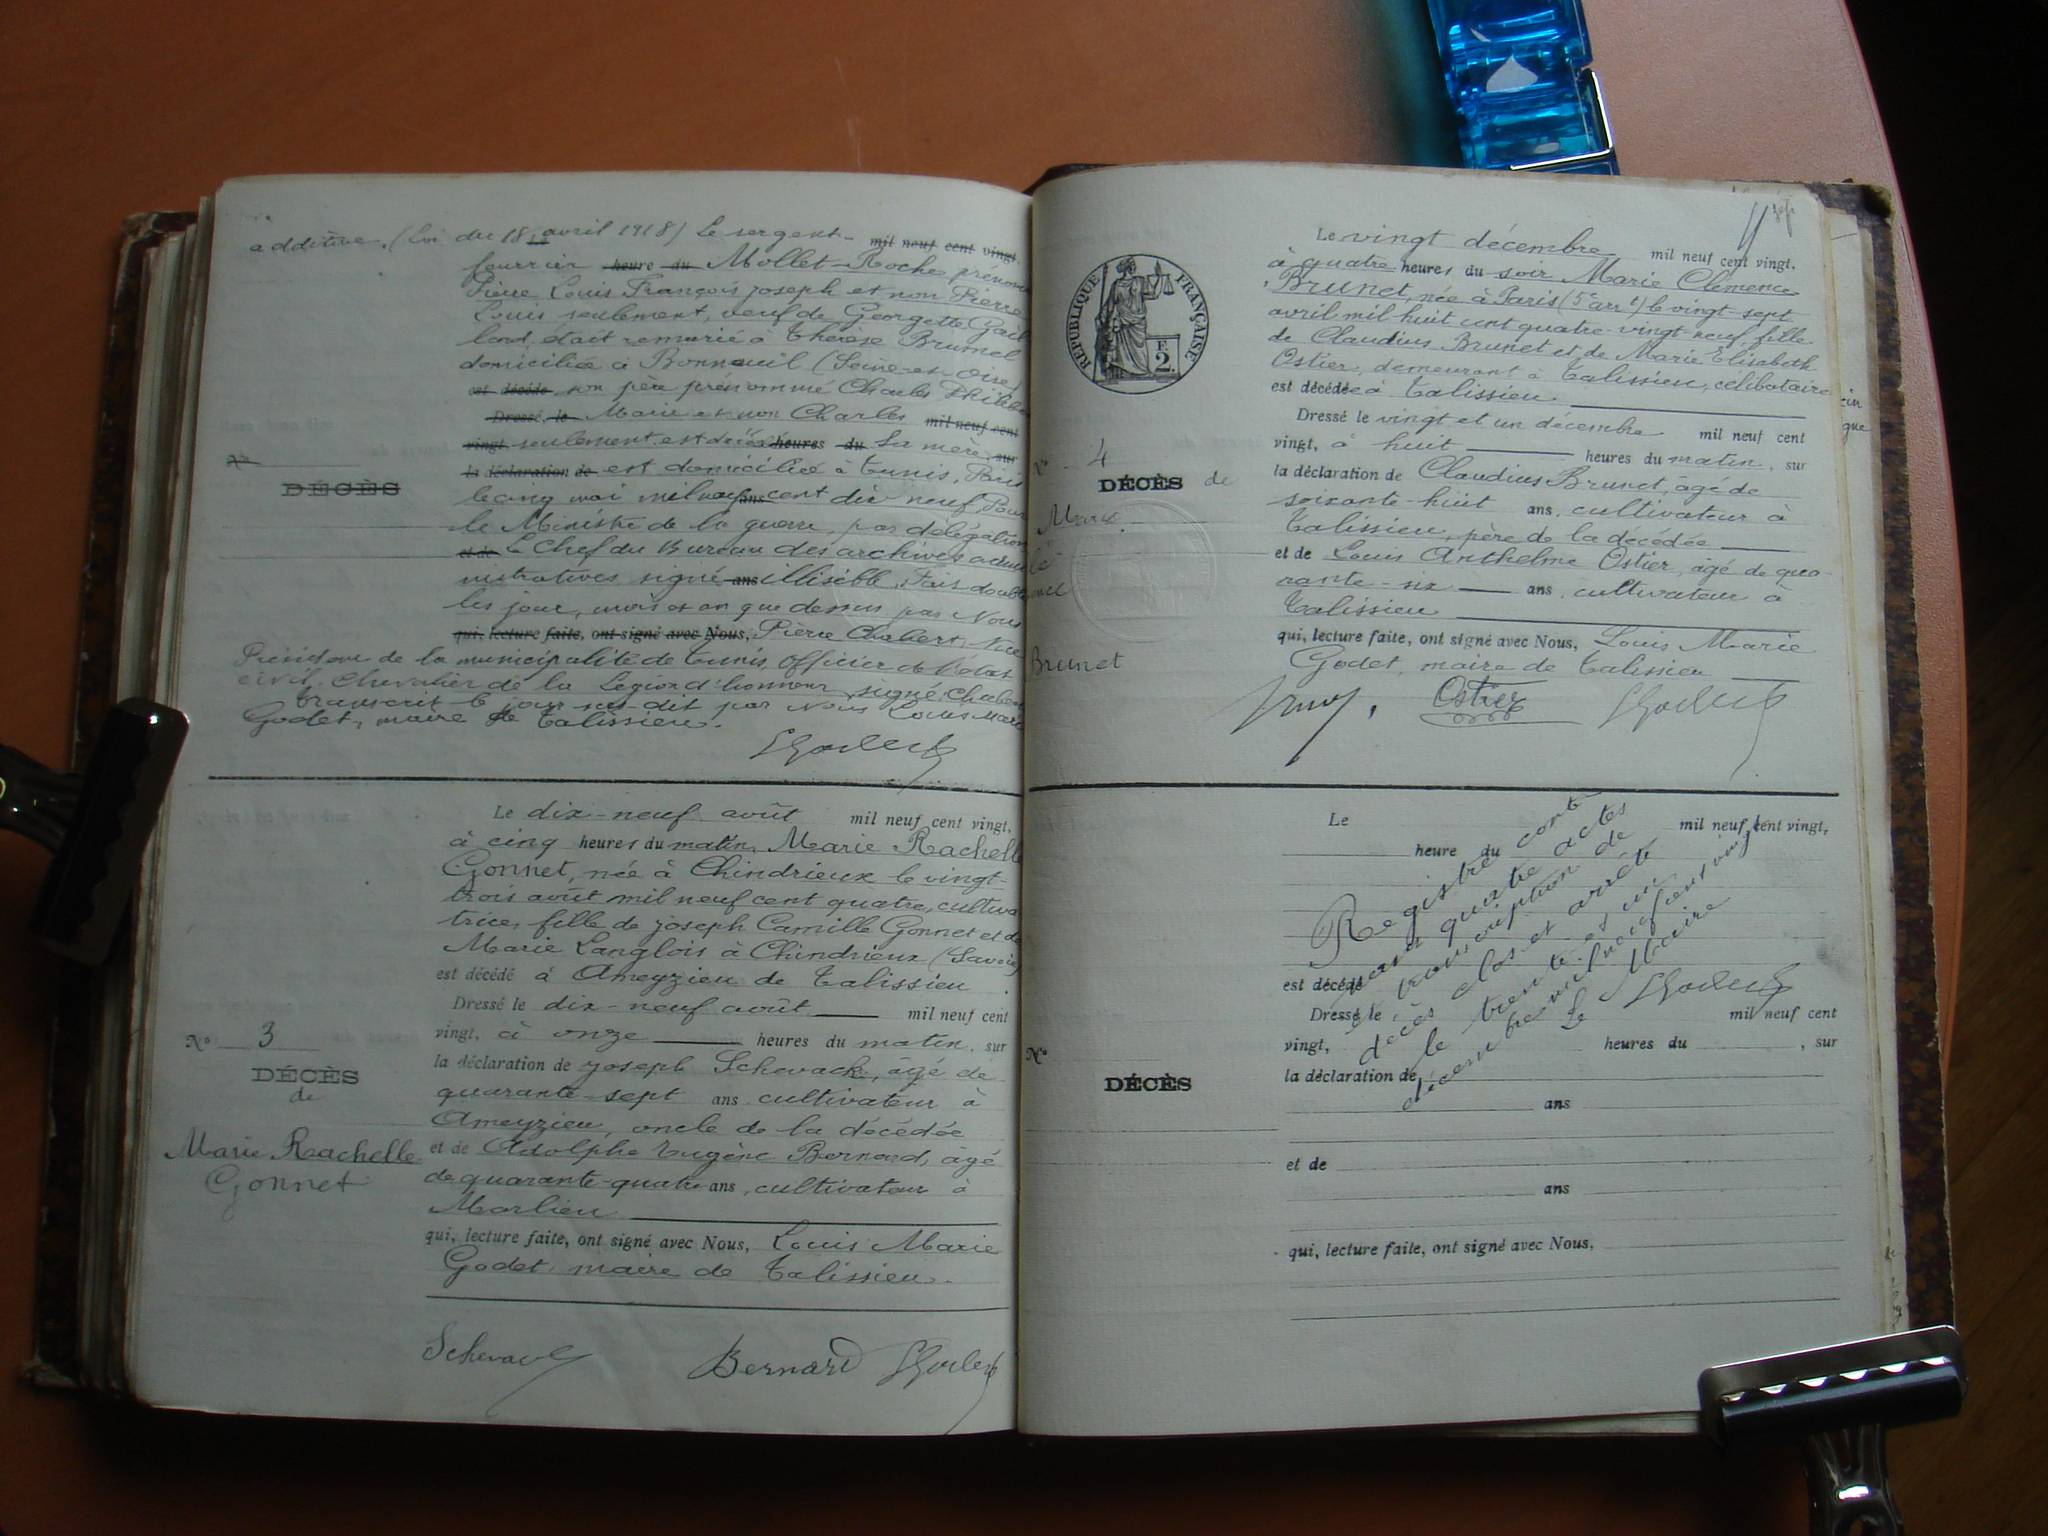 additive. (Loi du 18 avril 1918) Le sergent- mil neuf cent vingt,
fourrier heure du Mollet-Roche, prénom
Pierre Louis François joseph et non Pierre
Louis seulement, veuf de Georgette Gail
lard, était remarié à Thérèse Brumel
domiciliée à Bonneuil (Seine-et-Oise)
est décédé son père prénommé Charles
Dressé, le Marie et non Charles mil neuf cent
vingt, seulement est décédé heures du Sa mère, sur
la déclaration de est domiciliée à Tunis, Paris
le cinq mai mil neuf ans cent dix neuf, Pour
le Ministre de la guerre, par délégation
et de Le Chef du Bureau des archives admi
nistratives signé ans illisible, Fait double
les jour, mois et an que dessus par Nous
qui, lecture faite, ont signé avec Nous, Pierre Chabert, Vice
Président de la municipalité de Tunis, Officier de l'état
civil, Chevalier de la Légion d'honneur, signé, Chabert
Transcrit le jour sus-dit par Nous Louis Marie
Godet, maire de Talissieu.
N°
DÉCÈS
LGodet
Le dix-neuf août mil neuf cent vingt,
à cinq heures du matin, Marie Rachelle
Gonnet, née à Chindrieux le vingt-
trois août mil neuf cent quatre, cultiva
trice, fille de joseph Camille Gonnet et de
Marie Langlois à Chindrieux (Savoie)
est décédé à Ameyzieu de Talissieu
Dressé le dix-neuf août mil neuf cent
vingt, à onze heures du matin, sur
la déclaration de joseph Schevack, âgé de
quarante-sept ans, cultivateur à
Ameyzieu, oncle de la décédée
et de Adolphe Eugène Bernard, âgé
de quarante-quatre ans, cultivateur à
Marlieu
qui, lecture faite, ont signé avec Nous, Louis Marie
Godet, maire de Talissieu.
N° 3
DÉCÈS
de
Marie Rachelle
Gonnet
Schevack Bernard LGodet
RÉPUBLIQUE FRANÇAISE
F
2.
Le vingt décembre mil neuf cent vingt,
à quatre heures du soir Marie Clémence
Brunet, née à Paris (5e arrt) le vingt-sept
avril mil huit cent quatre-vingt neuf, fille
de Claudius Brunet et de Marie Elisabeth
Ostier, demeurant à Talissieu, célibataire
est décédée à Talissieu
Dressé le vingt et un décembre mil neuf cent
vingt, à huit heures du matin, sur
la déclaration de Claudius Brunet, âgé de
soixante-huit ans, cultivateur à
Talissieu, père de la décédée
et de Louis Anthelme Ostier, âgé de qua-
rante-six ans, cultivateur à
Talissieu
qui, lecture faite, ont signé avec Nous, Louis Marie
Godet, maire de Talissieu
N° 4
DÉCÈS de
Marie
Clé
mence
Brunet
Ostier LGodet
Le mil neuf cent vingt,
heure du
est décédé
Dressé le mil neuf cent
vingt, heures du , sur
la déclaration de
ans
et de
ans
qui, lecture faite, ont signé avec Nous,
N°
DÉCÈS
Registre conte
nant quatre actes
et transcription de
décès clos et arrêté
le trente et un
décembre mil neuf cent vingt
Le Maire
LGodet